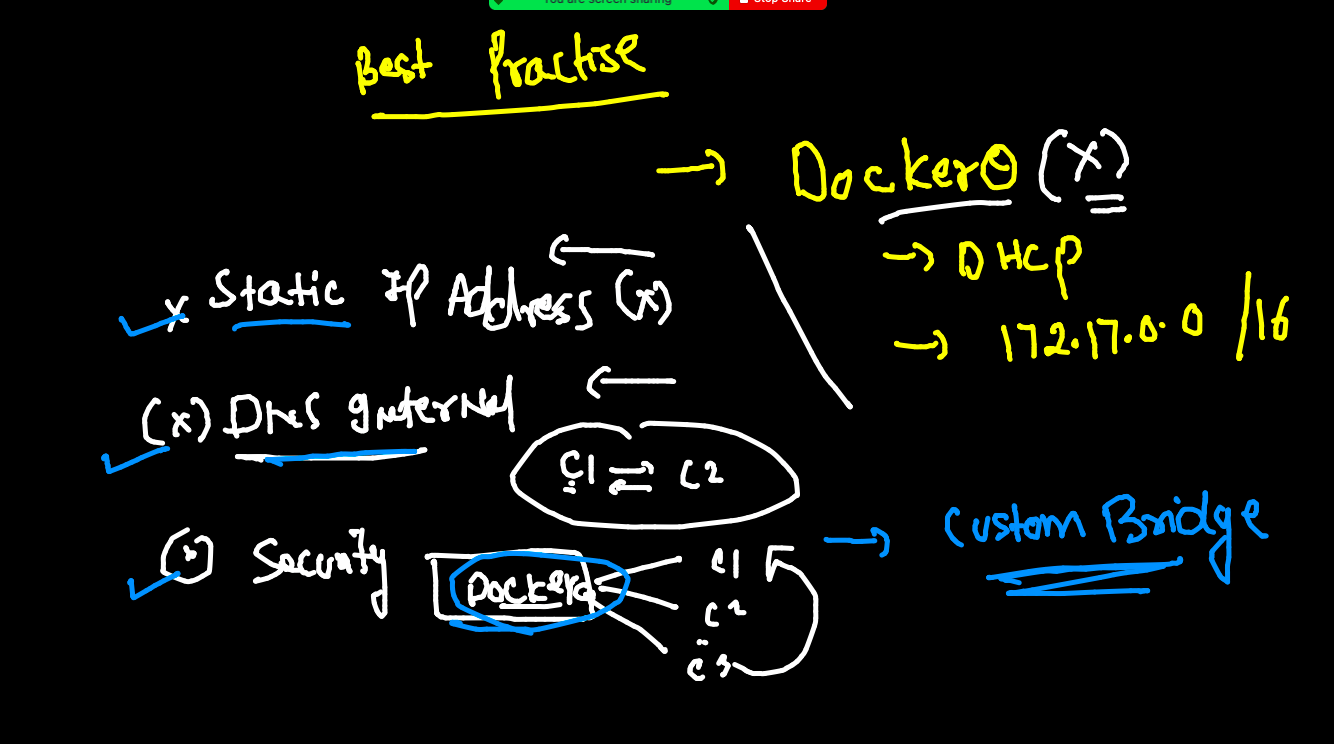 You are screen sharing
Stop Share
Best Practise
→ Docker0 (x)
→ DHCP
→ 172.17.0.0 /16
x Static IP Address (x)
(x) DNS Internal
C1 ⇌ C2
→ Custom Bridge
(x) Security
Docker0
C1
C2
C3